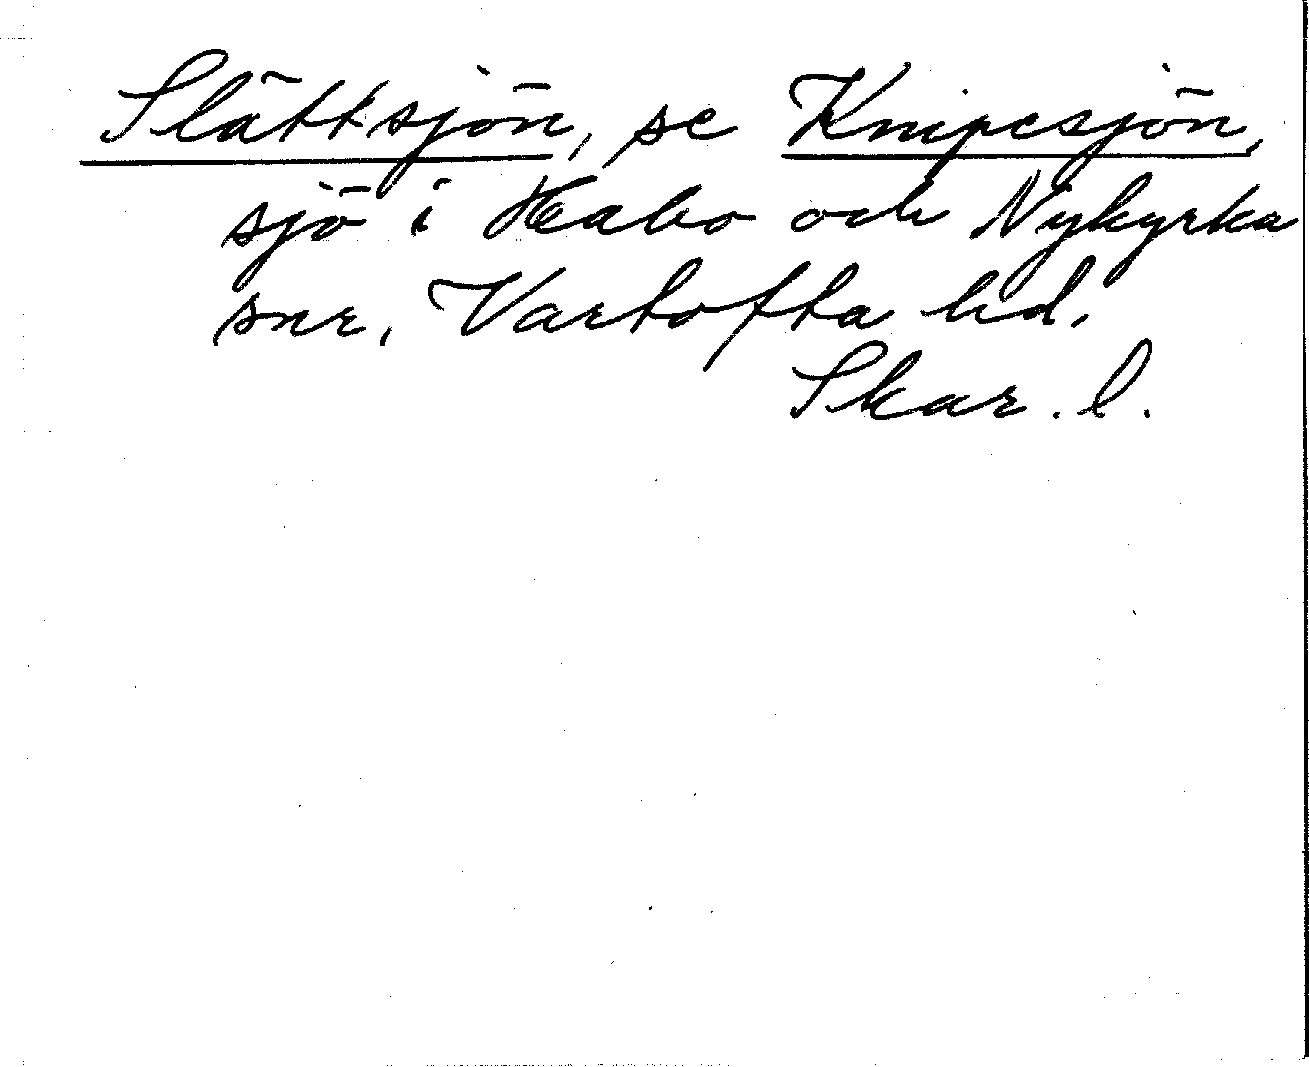 Slättsjön, se Knipesjön,
sjö i Habo och Nykyrka
snr, Vartofta hd.
Skar. l.